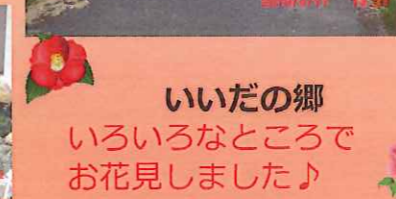 いいだの郷
いろいろなところで
お花見しました♪